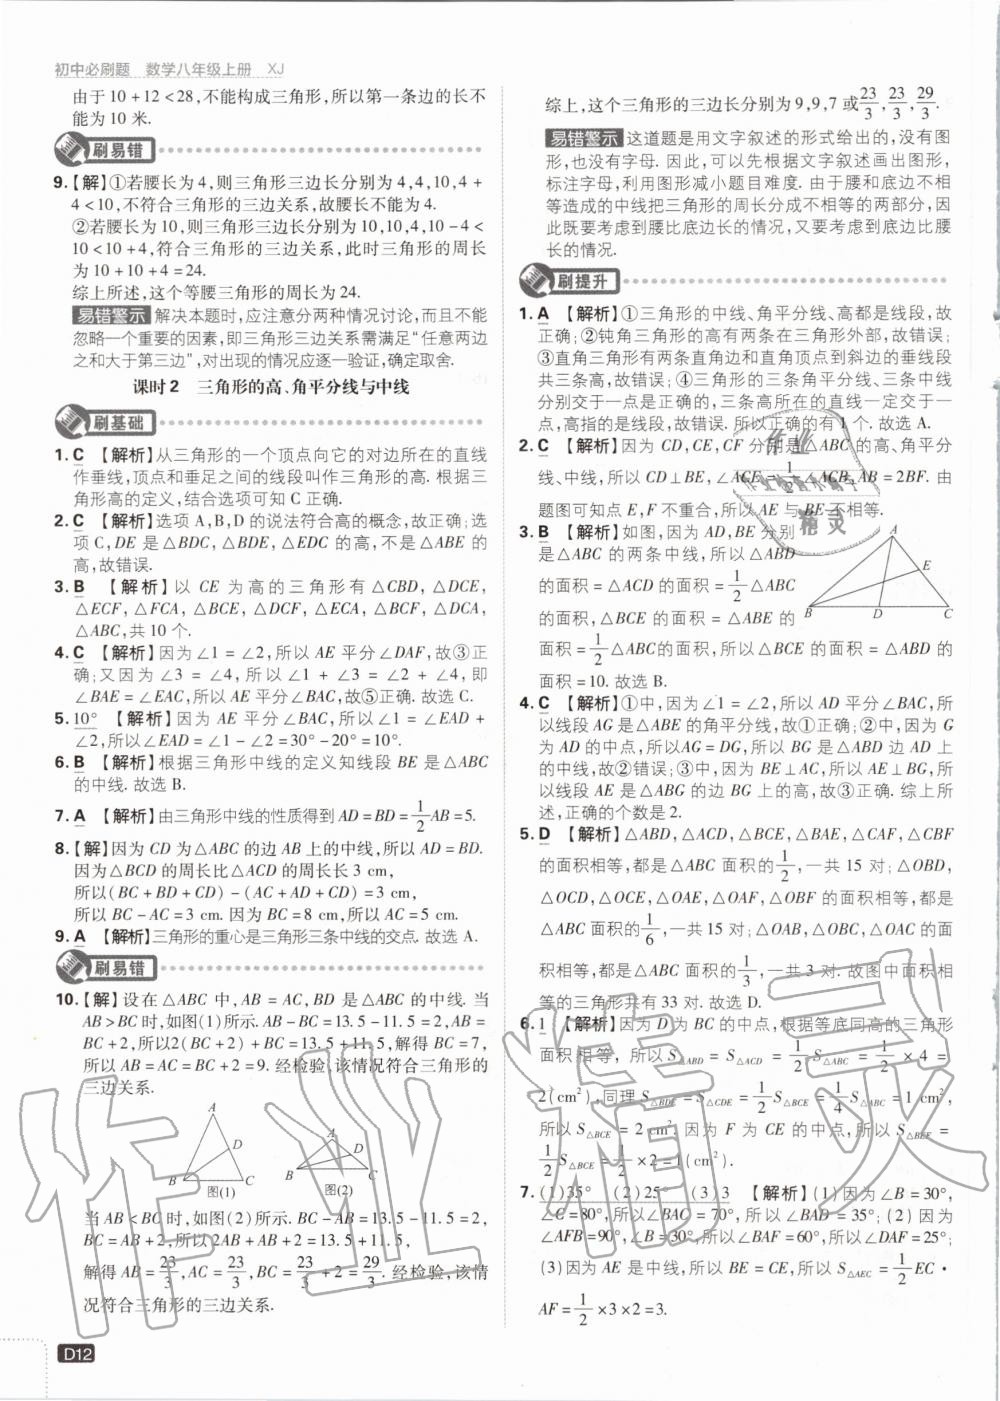 初中必刷题　数学八年级上册　XJ
由于 10 + 12 < 28, 不能构成三角形, 所以第一条边的长不
能为 10 米.
刷易错
9.【解】①若腰长为 4, 则三角形三边长分别为 4,4,10,4 +
4 < 10, 不符合三角形的三边关系, 故腰长不能为 4.
②若腰长为 10, 则三角形三边长分别为 10,10,4,10 - 4
< 10 < 10 + 4, 符合三角形的三边关系, 此时三角形的周长
为 10 + 10 + 4 = 24.
综上所述, 这个等腰三角形的周长为 24.
易错警示 解决本题时, 应注意分两种情况讨论, 而且不能
忽略一个重要的因素, 即三角形三边关系需满足“任意两边
之和大于第三边”, 对出现的情况应逐一验证, 确定取舍.
课时 2　三角形的高、角平分线与中线
刷基础
1. C 【解析】从三角形的一个顶点向它的对边所在的直线
作垂线, 顶点和垂足之间的线段叫作三角形的高. 根据三
角形高的定义, 结合选项可知 C 正确.
2. C 【解析】选项 A,B,D 的说法符合高的概念, 故正确; 选
项 C, DE 是△BDC, △BDE, △EDC 的高, 不是△ABE 的
高, 故错误.
3. B 【解析】以 CE 为高的三角形有△CBD, △DCE,
△ECF, △FCA, △BCE, △DCF, △ECA, △BCF, △DCA,
△ABC, 共 10 个.
4. C 【解析】因为∠1 = ∠2, 所以 AE 平分∠DAF, 故③正
确; 又因为∠3 = ∠4, 所以∠1 + ∠3 = ∠2 + ∠4, 即
∠BAE = ∠EAC, 所以 AE 平分∠BAC, 故⑤正确. 故选 C.
5. 10° 【解析】因为 AE 平分∠BAC, 所以∠1 = ∠EAD +
∠2, 所以∠EAD = ∠1 - ∠2 = 30° - 20° = 10°.
6. B 【解析】根据三角形中线的定义知线段 BE 是△ABC
的中线. 故选 B.
7. A 【解析】由三角形中线的性质得到 AD = BD = 1/2 AB = 5.
8.【解】因为 CD 为△ABC 的边 AB 上的中线, 所以 AD = BD.
因为△BCD 的周长比△ACD 的周长长 3 cm,
所以(BC + BD + CD) - (AC + AD + CD) = 3 cm,
所以 BC - AC = 3 cm. 因为 BC = 8 cm, 所以 AC = 5 cm.
9. A 【解析】三角形的重心是三角形三条中线的交点. 故选 A.
刷易错
10.【解】设在△ABC 中, AB = AC, BD 是△ABC 的中线. 当
AB > BC 时, 如图(1)所示. AB - BC = 13.5 - 11.5 = 2, AB =
BC + 2, 所以 2(BC + 2) + BC = 13.5 + 11.5, 解得 BC = 7,
所以 AB = AC = BC + 2 = 9. 经检验, 该情况符合三角形的
三边关系.
A
D
B
C
图(1)
A
D
B
C
图(2)
当 AB < BC 时, 如图(2)所示. BC - AB = 13.5 - 11.5 = 2,
BC = AB + 2, 所以 2AB + AB + 2 = 13.5 + 11.5,
解得 AB = 23/3, AC = 23/3, BC = 23/3 + 2 = 29/3. 经检验, 该情
况符合三角形的三边关系.
D12
综上, 这个三角形的三边长分别为 9,9,7 或 23/3, 23/3, 29/3.
易错警示 这道题是用文字叙述的形式给出的, 没有图形,
也没有字母. 因此, 可以先根据文字叙述画出图形,
标注字母, 利用图形减小题目难度. 由于腰和底边不相
等造成的中线把三角形的周长分成不相等的两部分, 因
此既要考虑到腰比底边长的情况, 又要考虑到底边比腰
长的情况.
刷提升
1. A 【解析】①三角形的中线、角平分线、高都是线段, 故
正确; ②钝角三角形的高有两条在三角形外部, 故错误;
③直角三角形有两条直角边和直角顶点到斜边的垂线段
共三条高, 故错误; ④三角形的三条角平分线、三条中线
分别交于一点是正确的, 三条高所在的直线一定交于一
点, 高指的是线段, 故错误. 所以正确的有 1 个. 故选 A.
2. C 【解析】因为 CD, CE, CF 分别是△ABC 的高、角平分
线、中线, 所以 CD⊥BE, ∠ACE = 1/2 ∠ACB, AB = 2BF. 由
题图可知点 E, F 不重合, 所以 AE 与 BE 不相等.
3. B 【解析】如图, 因为 AD, BE 分别
是△ABC 的两条中线, 所以△ABD
的面积 = △ACD 的面积 = 1/2 △ABC
的面积, △BCE 的面积 = △ABE 的
面积 = 1/2 △ABC 的面积, 所以△BCE 的面积 = △ABD 的
面积 = 10. 故选 B.
A
E
B
D
C
4. C 【解析】①中, 因为∠1 = ∠2, 所以 AD 平分∠BAC, 所
以线段 AG 是△ABE 的角平分线, 故①正确; ②中, 因为 G
为 AD 的中点, 所以 AG = DG, 所以 BG 是△ABD 边 AD 上
的中线, 故②错误; ③中, 因为 BE⊥AC, 所以 AE⊥BG, 所
以线段 AE 是△ABG 的边 BG 上的高, 故③正确. 综上所
述, 正确的个数是 2.
5. D 【解析】△ABD, △ACD, △BCE, △BAE, △CAF, △CBF
的面积相等, 都是△ABC 面积的 1/2, 一共 15 对; △OBD,
△OCD, △OCE, △OAE, △OAF, △OBF 的面积相等, 都是
△ABC 面积的 1/6, 一共 15 对; △OAB, △OBC, △OAC 的面
积相等, 都是△ABC 面积的 1/3, 一共 3 对. 故图中面积相
等的三角形共有 33 对. 故选 D.
6. 1 【解析】因为 D 为 BC 的中点, 根据等底同高的三角形
面积相等, 所以 S△ABD = S△ACD = 1/2 S△ABC = 1/2 × 4 =
2(cm²), 同理 S△BDE = S△CDE = 1/2 S△BCE = 1/4 S△ABC = 1 cm²,
所以 S△BCE = 2 cm². 因为 F 为 CE 的中点, 所以 S△BEF =
1/2 S△BCE = 1/2 × 2 = 1(cm²).
7. (1)35° (2)25° (3)3 【解析】(1)因为∠B = 30°,
∠C = 80°, 所以∠BAC = 70°, 所以∠BAD = 35°; (2)因为
∠AFB = 90°, ∠B = 30°, 所以∠BAF = 60°, 所以∠DAF = 25°;
(3)因为 AE 是中线, 所以 BE = CE, 所以 S△AEC = 1/2 EC·
AF = 1/2 × 3 × 2 = 3.
作业精灵
作业
精灵